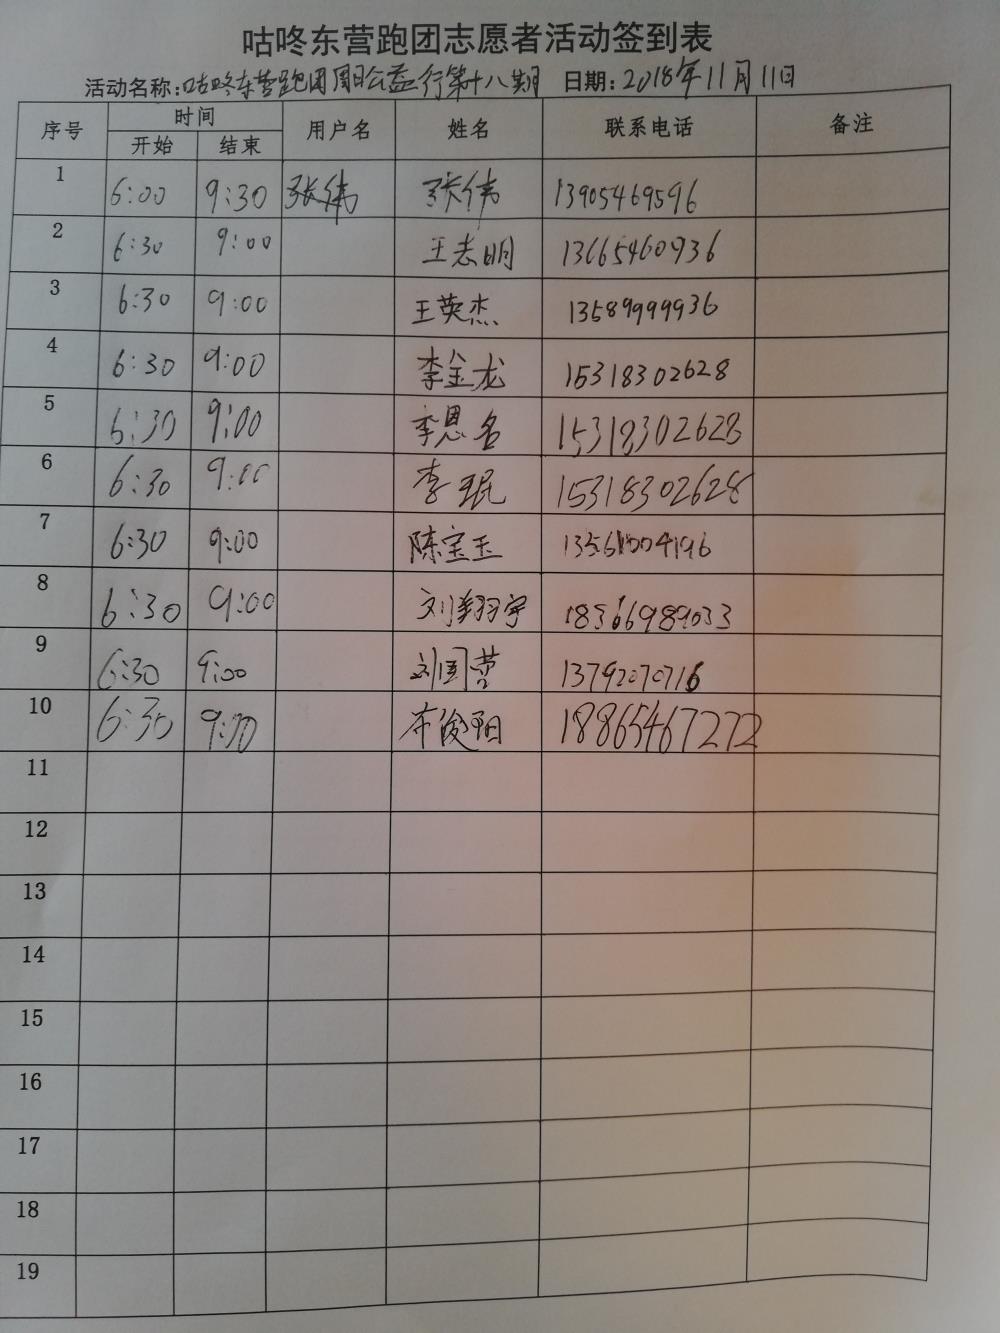 咕咚东营跑团志愿者活动签到表
活动名称:咕咚东营跑团周日公益行第十八期 日期:2018年11月11日
序号 时间 用户名 姓名 联系电话 备注
开始 结束
1 6:00 9:30 张伟 张伟 13905469596
2 6:30 9:00 王志明 13665460936
3 6:30 9:00 王英杰 13589999936
4 6:30 9:00 李金龙 15318302628
5 6:30 9:00 李恩名 15318302628
6 6:30 9:00 李琨 15318302628
7 6:30 9:00 陈宝玉 13561004196
8 6:30 9:00 刘翔宇 18366989033
9 6:30 9:00 刘国营 13792070716
10 6:30 9:00 俊阳 18865467272
11
12
13
14
15
16
17
18
19